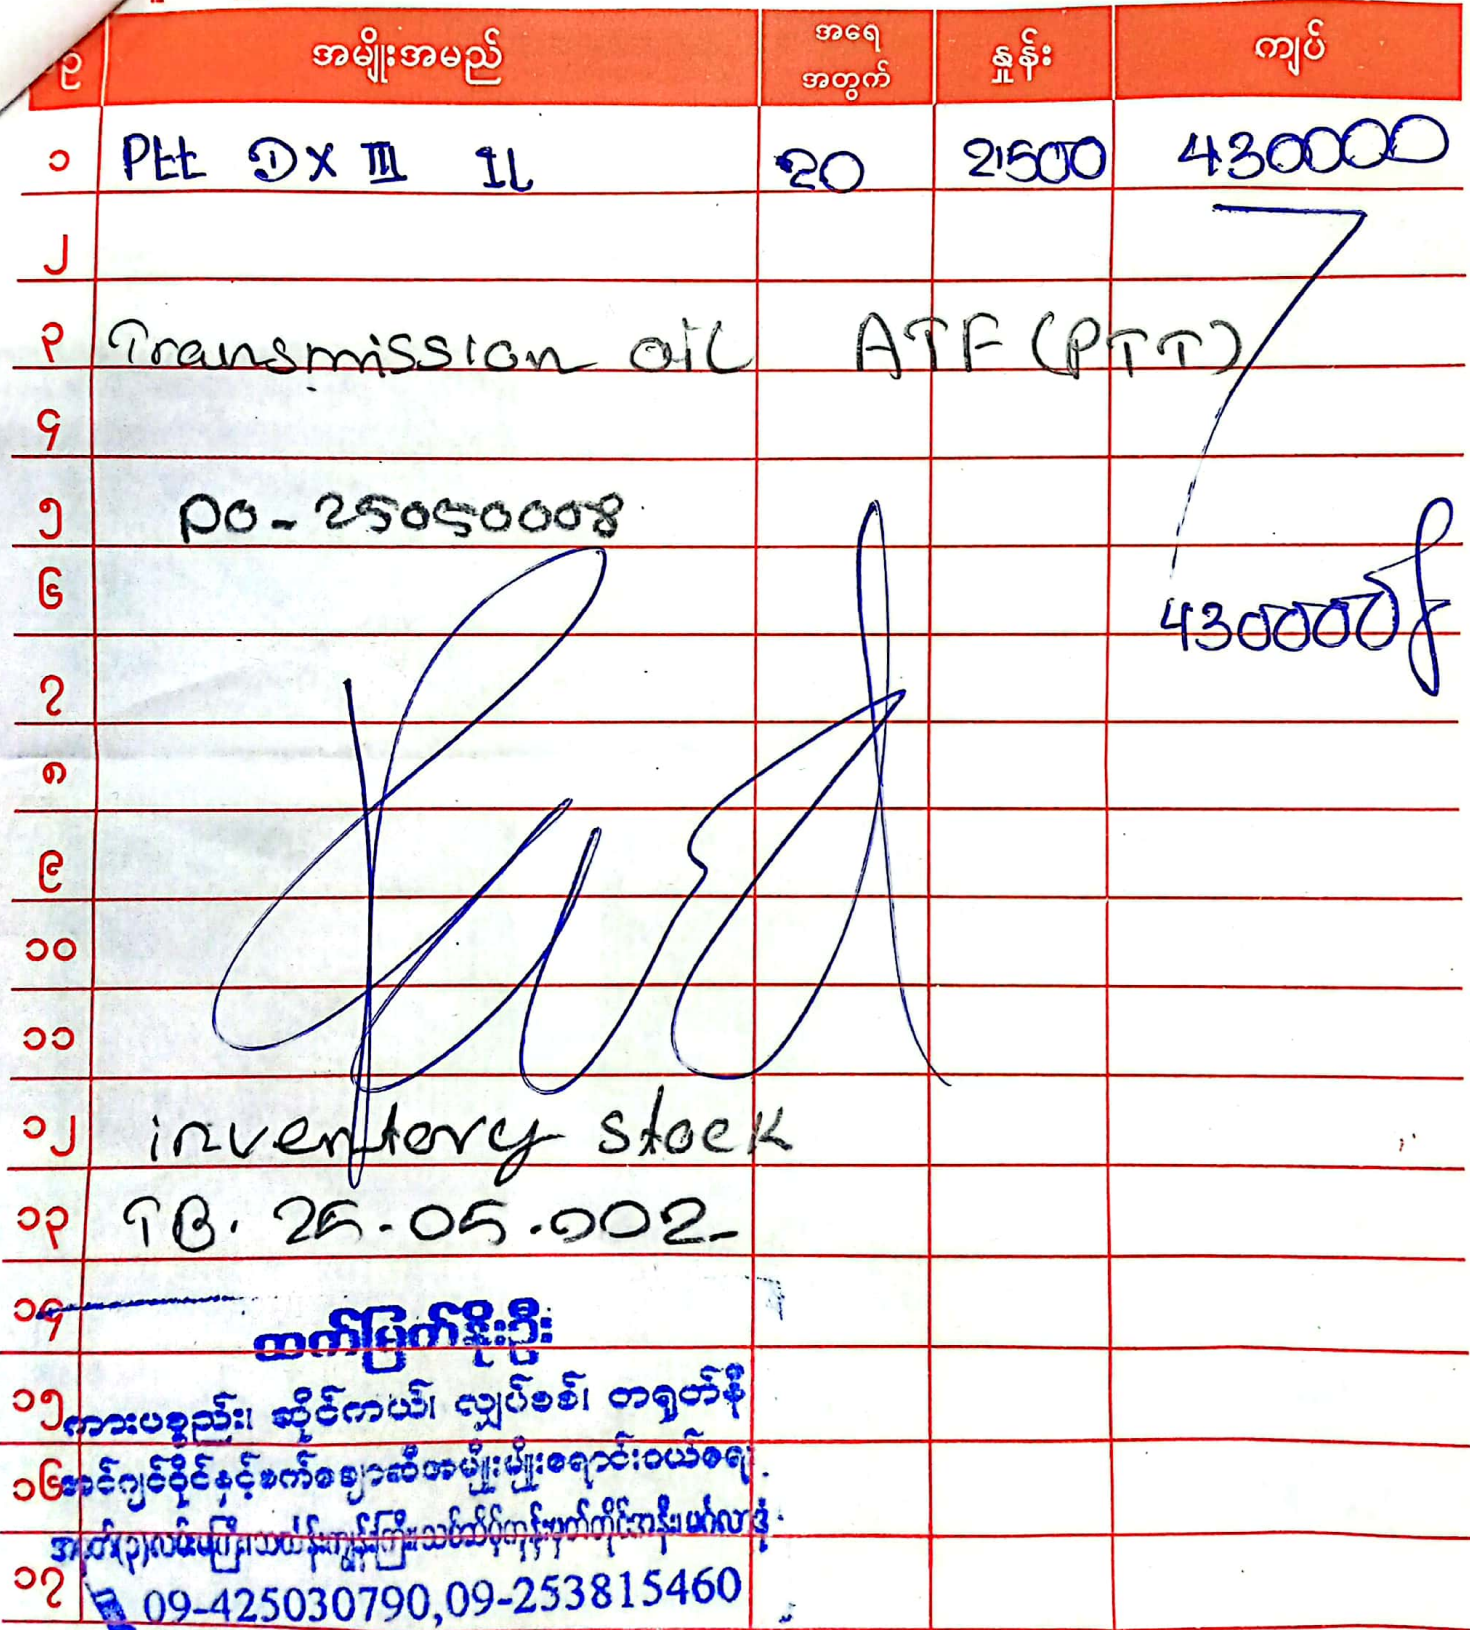 စဉ် အမျိုးအမည် အရေအတွက် နှုန်း ကျပ်
၁ Ptt DX III 1L 20 21500 430000
၂
၃ Transmission oil ATF (PTT)
၄
၅ PO-25050008
၆ 430000
၇
၈
၉
၁၀
၁၁
၁၂ inventory stock
၁၃ TB. 25.05.002
၁၄ ထက်မြက်စိုးဦး
၁၅ ကားပစ္စည်း၊ ဆိုင်ကယ်၊ လျှပ်စစ်၊ တရုတ်နီ
၁၆ အင်ဂျင်ဝိုင်နှင့်စက်ချောဆီအမျိုးမျိုးရောင်းဝယ်ရေး
၁၇ 09-425030790,09-253815460